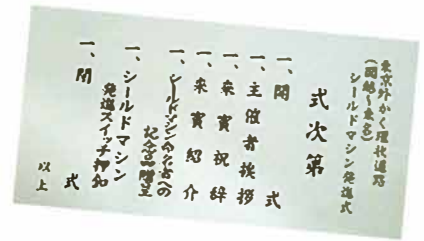 東京外かく環状道路
(関越~東名)
シールドマシン発進式
式次第
一、開式
一、主催者挨拶
一、来賓祝辞
一、来賓紹介
一、シールドマシン命名者への
記念品贈呈
一、シールドマシン
発進スイッチ押釦
一、閉式
以上